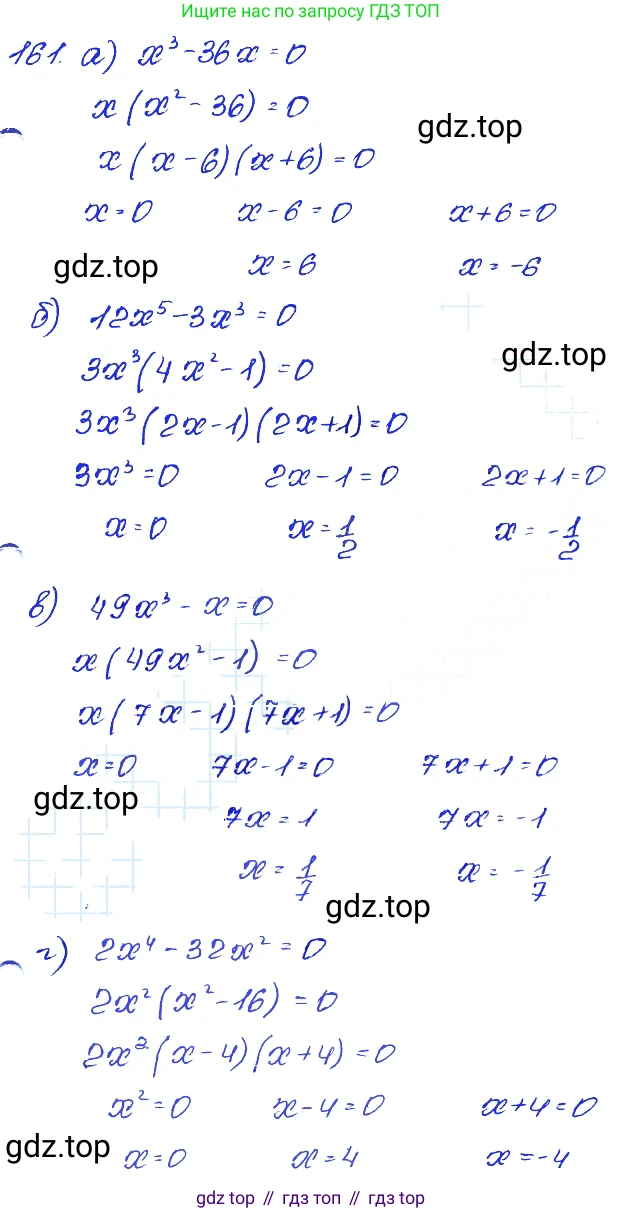 Ищите нас по запросу ГДЗ ТОП
161. а) x³ - 36x = 0
x (x² - 36) = 0
gdz.top
x (x - 6) (x + 6) = 0
x = 0 x - 6 = 0 x + 6 = 0
gdz.top x = 6 x = -6
б) 12x⁵ - 3x³ = 0
gdz.top
3x³ (4x² - 1) = 0
3x³ (2x - 1) (2x + 1) = 0
3x³ = 0 2x - 1 = 0 2x + 1 = 0
x = 0 x = 1/2 x = -1/2
в) 49x³ - x = 0
x (49x² - 1) = 0
x (7x - 1) (7x + 1) = 0
x = 0 7x - 1 = 0 7x + 1 = 0
gdz.top
7x = 1 7x = -1
x = 1/7 x = -1/7
gdz.top
г) 2x⁴ - 32x² = 0
2x² (x² - 16) = 0
2x² (x - 4) (x + 4) = 0
x² = 0 x - 4 = 0 x + 4 = 0
gdz.top x = 0 x = 4 x = -4
gdz top // гдз топ // gdz.top